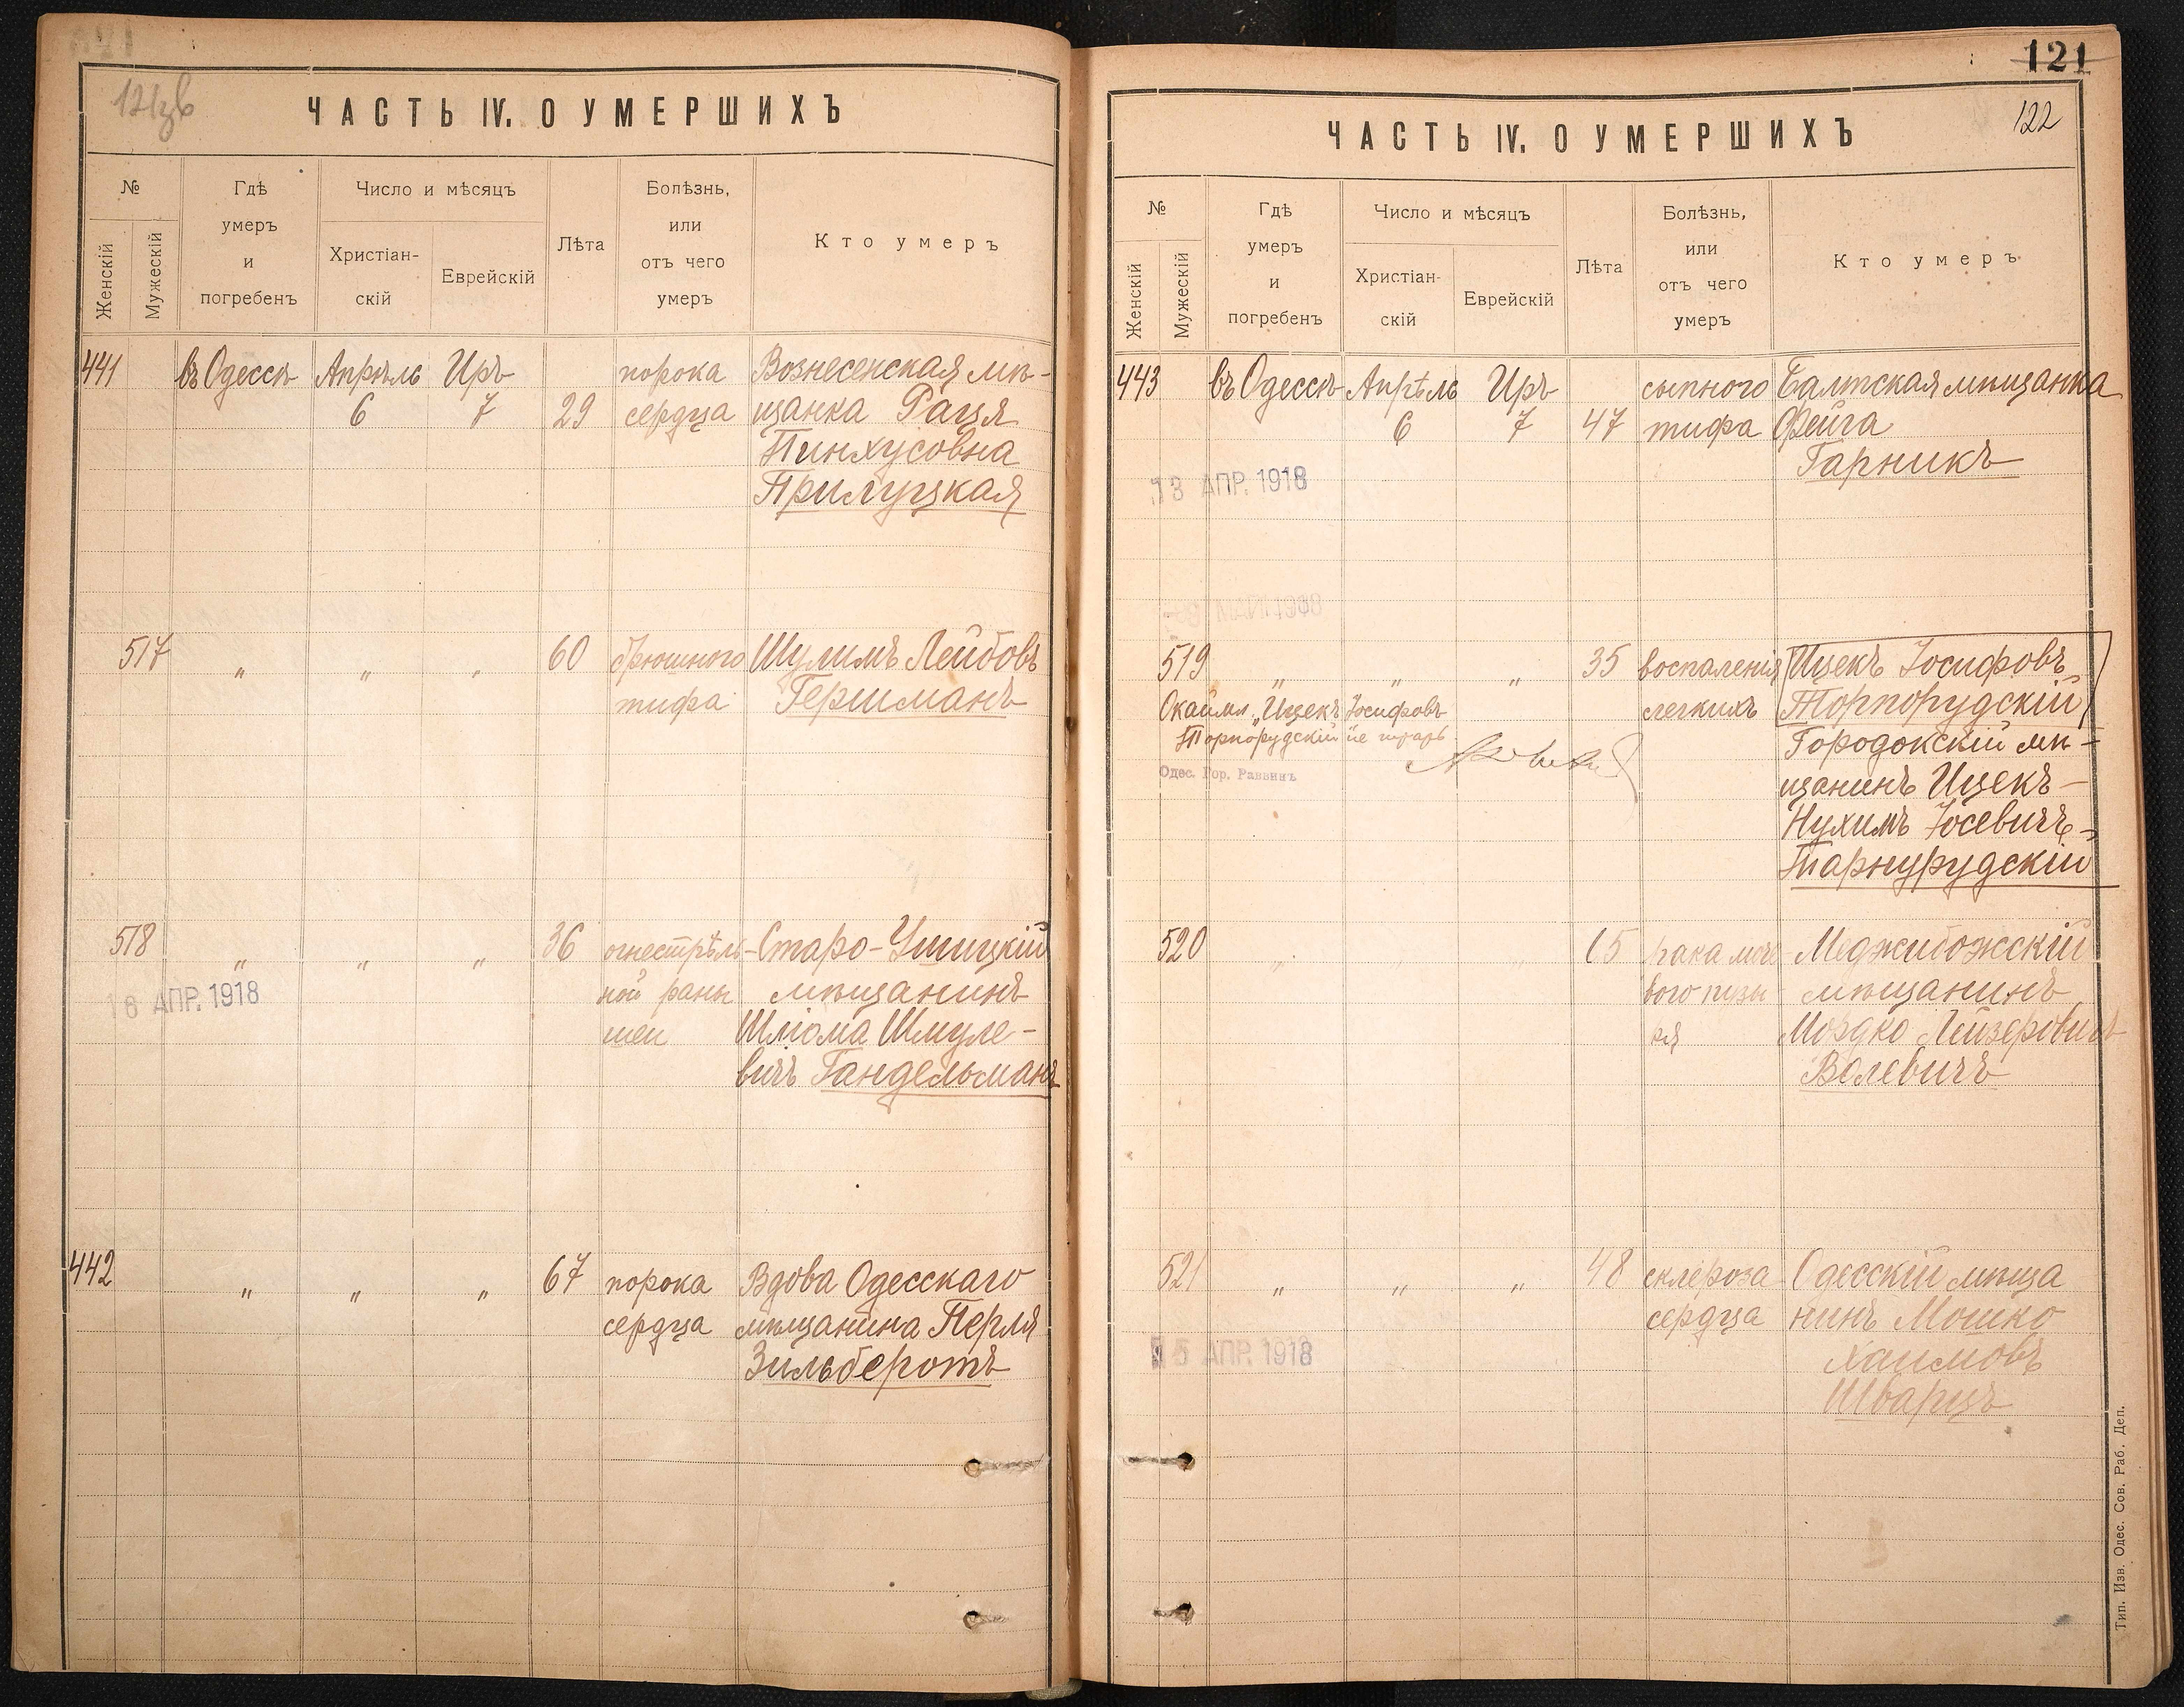 ЧАСТЬ IV. О УМЕРШИХЪ
№
Женскій
Мужескій
Гдѣ
умеръ
и
погребенъ
Число и мѣсяцъ
Христіан-
скій
Еврейскій
Лѣта
Болѣзнь,
или
отъ чего
умеръ
Кто умеръ
441 въ Одессѣ Апрѣль Иръ порока Вознесенская мѣ-
6 7 29 сердца щанка Рация
Пинхусовна
Прилуцкая
517 „ „ „ 60 брюшного Шулимъ Лейбовъ
тифа Гершманъ
518 „ „ „ 36 огнестрѣль- Старо-Ушицкій
ной раны мѣщанинъ
16 АПР. 1918
шеи Шліома Шмуле-
вичъ Гандельманъ
442 „ „ „ 67 порока Вдова Одесскаго
сердца мѣщанина Перля
Зильберотъ
121
122
ЧАСТЬ IV. О УМЕРШИХЪ
№
Женскій
Мужескій
Гдѣ
умеръ
и
погребенъ
Число и мѣсяцъ
Христіан-
скій
Еврейскій
Лѣта
Болѣзнь,
или
отъ чего
умеръ
Кто умеръ
443 въ Одессѣ Апрѣль Иръ сыпного Балтская мѣщанка
6 7 47 тифа Фейга
Гарникъ
13 АПР. 1918
519 „ „ „ 35 воспаленія Ицекъ Іосифовъ
легкихъ Торпорудскій
„Ицекъ Іосифовъ
Торпорудскій не
Одес. Гор. Раввинъ
Городокскій мѣ-
щанинъ Ицекъ-
Нухимъ Іосевичъ-
Тарнурудскій
520 „ „ 65 рака моче Меджибожскій
вого пузы мѣщанинъ
ря Мордко Лейзеровичъ
Волевичъ
521 „ „ „ 48 склероза Одесскій мѣща
сердца нинъ Мошко
15 АПР. 1918
Хаимовъ
Шварцъ
Тип. Изв. Одес. Сов. Раб. Деп.